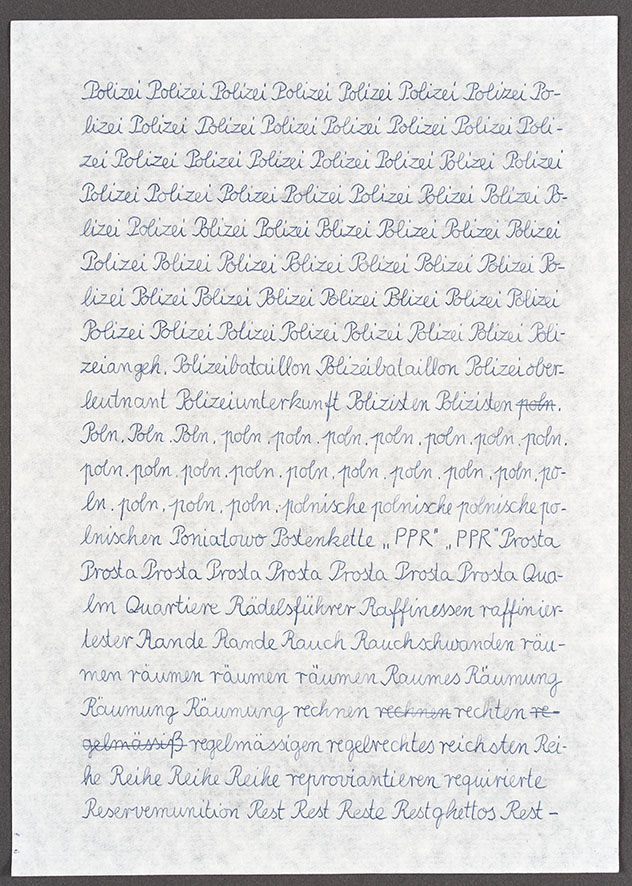 Polizei Polizei Polizei Polizei Polizei Polizei Polizei Po-
lizei Polizei Polizei Polizei Polizei Polizei Polizei Poli-
zei Polizei Polizei Polizei Polizei Polizei Polizei Polizei
Polizei Polizei Polizei Polizei Polizei Polizei Polizei Po-
lizei Polizei Polizei Polizei Polizei Polizei Polizei Polizei
Polizei Polizei Polizei Polizei Polizei Polizei Polizei Po-
lizei Polizei Polizei Polizei Polizei Polizei Polizei Polizei
Polizei Polizei Polizei Polizei Polizei Polizei Polizei Poli-
zeiangeh. Polizeibataillon Polizeibataillon Polizeiober-
leutnant Polizeiunterkunft Polizisten Polizisten poln.
Poln. Poln. Poln. poln. poln. poln. poln. poln. poln. poln.
poln. poln. poln. poln. poln. poln. poln. poln. poln. po-
ln. poln. poln. poln. polnische polnische polnische po-
lnischen Poniatowo Postenkette „PPR" „PPR" Prosta
Prosta Prosta Prosta Prosta Prosta Prosta Prosta Qua-
lm Quartiere Rädelsführer Raffinessen raffinier-
tester Rande Rande Rauch Rauchschwanden räu-
men räumen räumen räumen Raumes Räumung
Räumung Räumung rechnen rechnen rechten re-
gelmässiß regelmässigen regelrechtes reichsten Rei-
he Reihe Reihe Reihe reproviantieren requirierte
Reservemunition Rest Rest Reste Restghettos Rest-